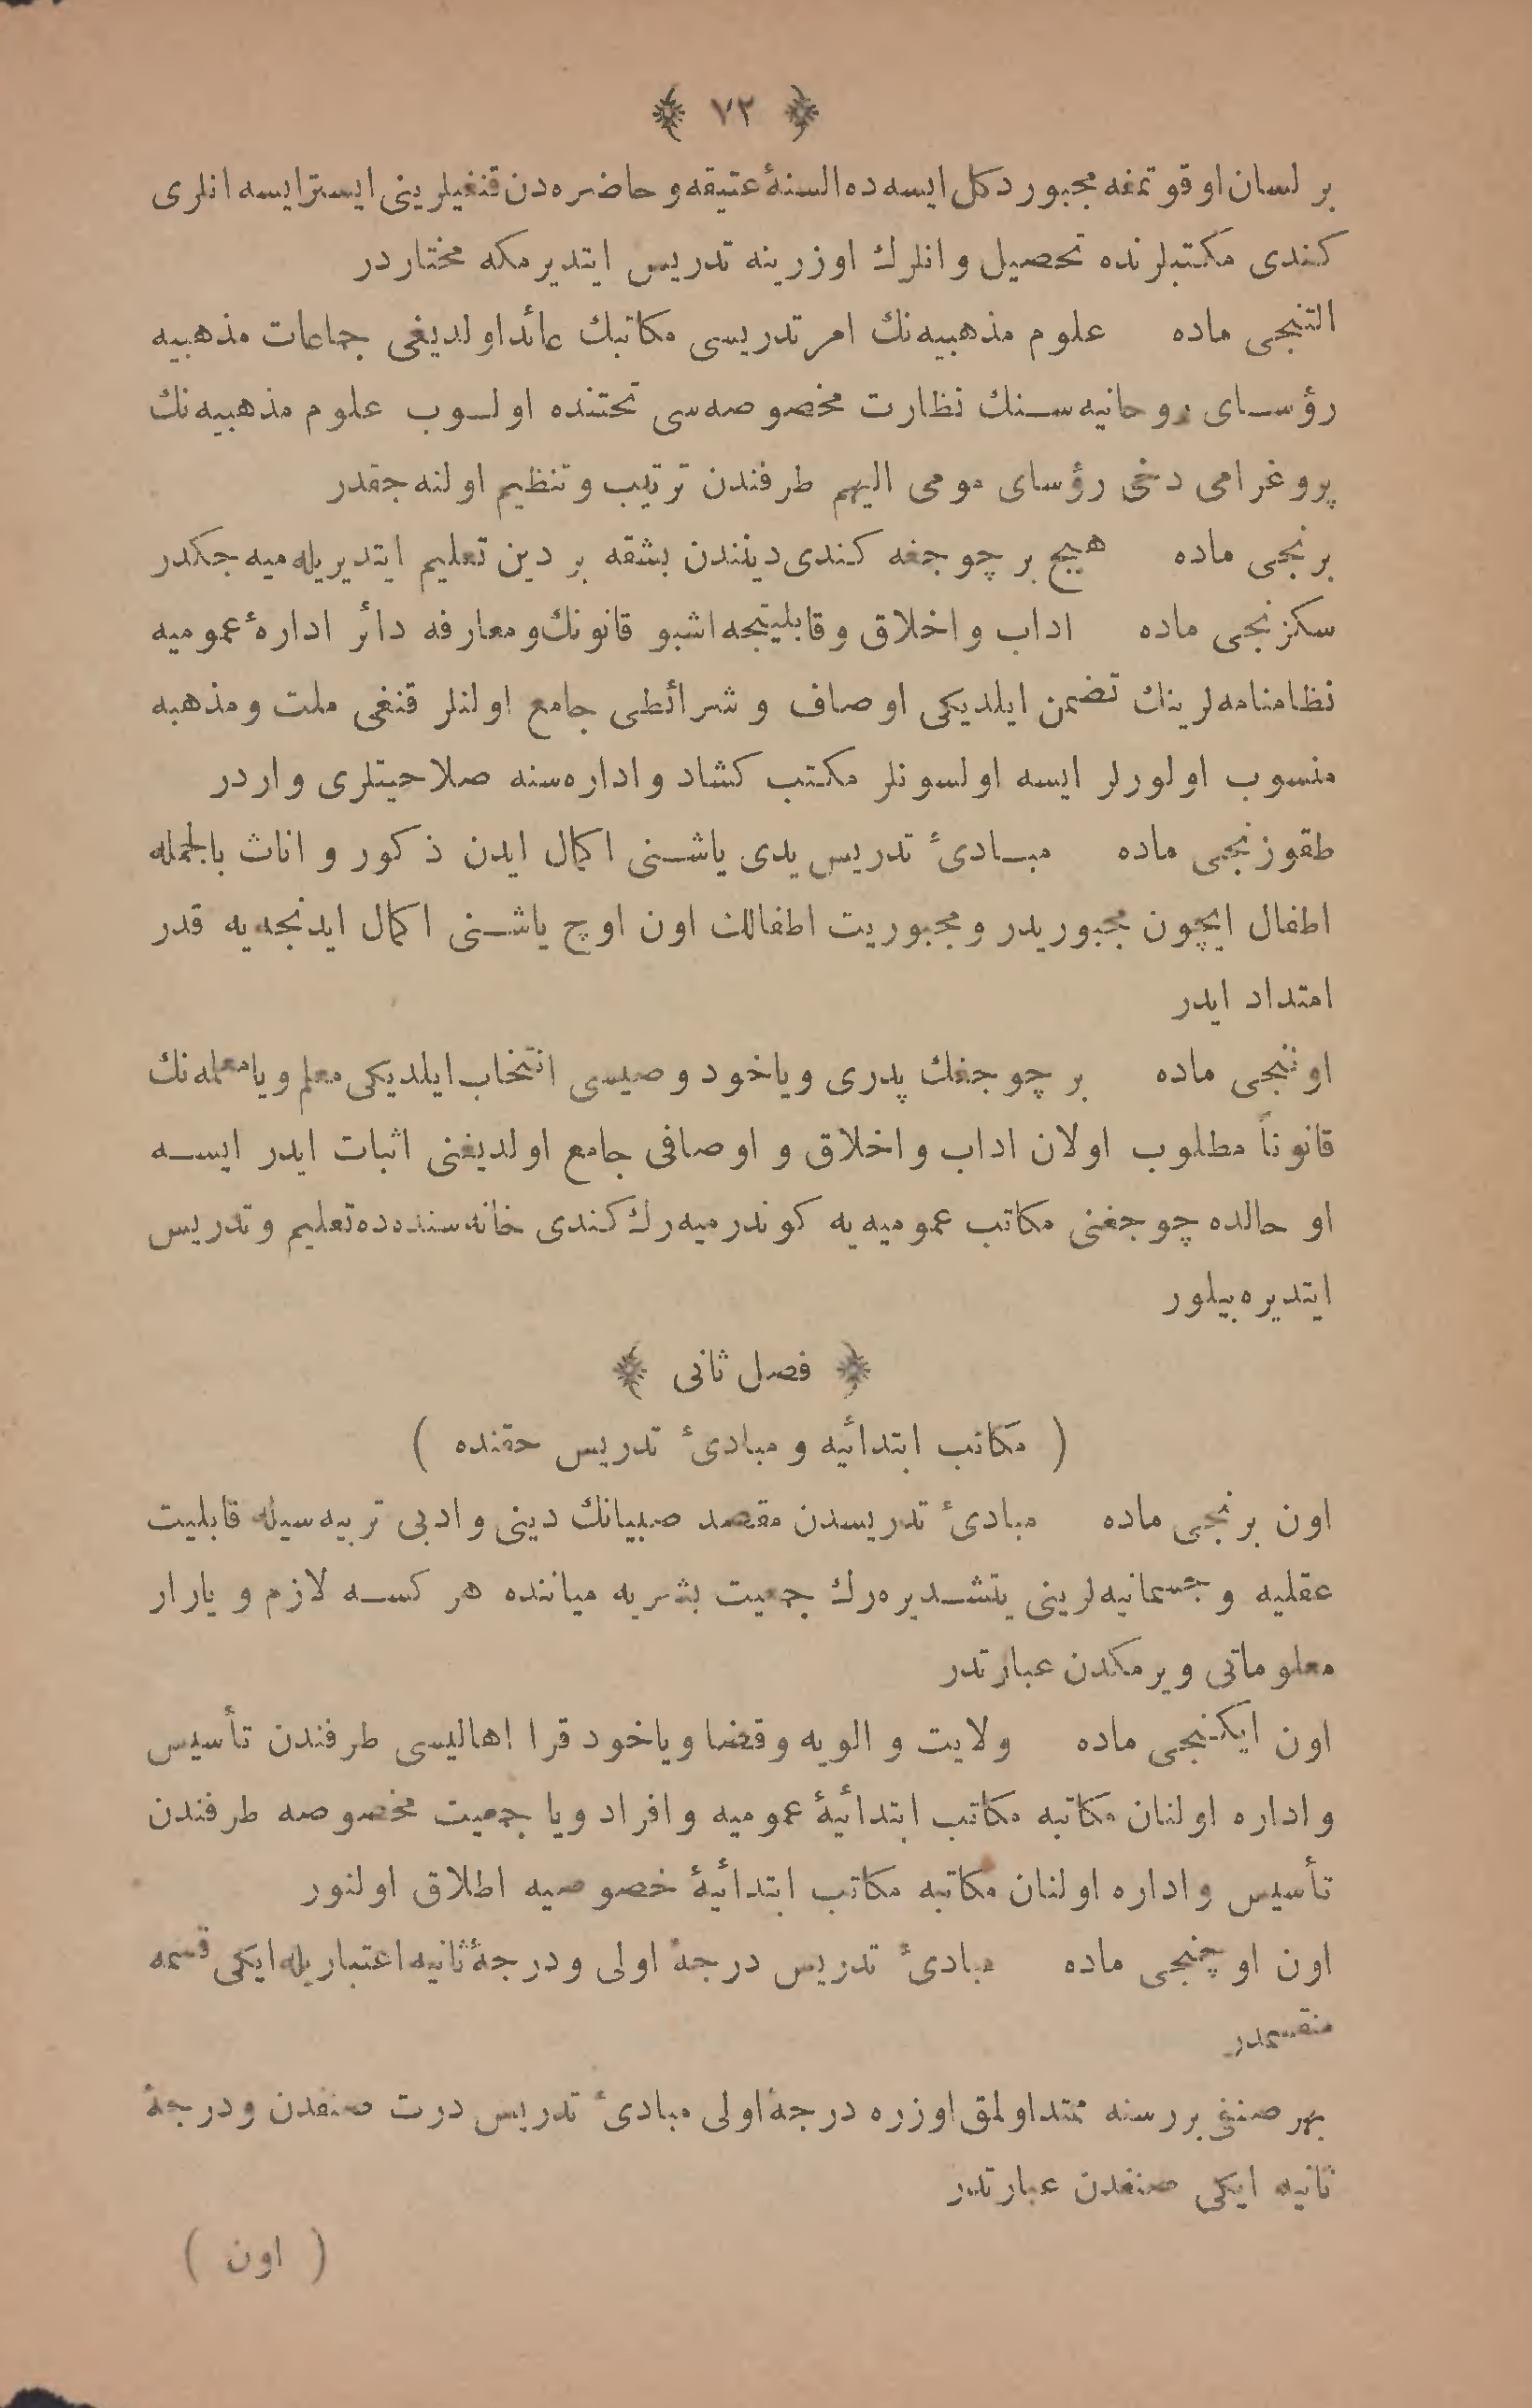 ﴿ ٧٢ ﴾
بر لسان اوقوتمغه مجبور دكل ايسه ده السنۀ عتيقه و حاضره دن قنغيلريني ايستر ايسه انلرى
كندى مكتبلرنده تحصيل و انلرك اوزرينه تدريس ايتديرمكه مختاردر
التنجى ماده علوم مذهبيه نك امر تدريسى مكاتبك عائد اولديغى جماعات مذهبيه
رؤساى روحانيه سنك نظارت مخصوصه سى تحتنده اولوب علوم مذهبيه نك
پروغرامى دخى رؤساى مومى اليهم طرفندن ترتيب و تنظيم اولنه جقدر
برنجى ماده هيچ بر چوجغه كندى دينندن بشقه بر دين تعليم ايتديريله ميه جكدر
سكزنجى ماده اداب و اخلاق و قابليتجه اشبو قانونك و معارفه دائر ادارۀ عموميه
نظامنامه لرينك تضمن ايلديكى اوصاف و شرائطى جامع اولنلر قنغى ملت و مذهبه
منسوب اولورلر ايسه اولسونلر مكتب كشاد و اداره سنه صلاحيتلرى واردر
طقوزنجى ماده مبادئ تدريس يدى ياشنى اكمال ايدن ذكور و اناث بالجمله
اطفال ايچون مجبوريدر و مجبوريت اطفالك اون اوچ ياشنى اكمال ايدنجه يه قدر
امتداد ايدر
اوننجى ماده بر چوجغك پدرى وياخود وصيسى انتخاب ايلديكى معلم ويا معلمه نك
قانوناً مطلوب اولان اداب و اخلاق و اوصافى جامع اولديغنى اثبات ايدر ايسه
او حالده چوجغنى مكاتب عموميه يه كوندرميه رك كندى خانه سنده ده تعليم و تدريس
ايتديره بيلور
﴿ فصل ثانى ﴾
( مكاتب ابتدائيه و مبادئ تدريس حقنده )
اون برنجى ماده مبادئ تدريسدن مقصد صبيانك دينى و ادبى تربيه سيله قابليت
عقليه و جسمانيه لرينى يتشديره رك جمعيت بشريه مياننده هر كسه لازم و يارار
معلوماتى ويرمكدن عبارتدر
اون ايكنجى ماده ولايت و الويه و قضا وياخود قرا اهاليسى طرفندن تأسيس
و اداره اولنان مكاتبه مكاتب ابتدائيۀ عموميه و افراد ويا جمعيت مخصوصه طرفندن
تأسيس و اداره اولنان مكاتبه مكاتب ابتدائيۀ خصوصيه اطلاق اولنور
اون اوچنجى ماده مبادئ تدريس درجۀ اولى و درجۀ ثانيه اعتباريله ايكى قسمه
منقسمدر
بهر صنفى بر سنه ممتد اولمق اوزره درجۀ اولى مبادئ تدريس درت صنفدن و درجۀ
ثانيه ايكى صنفدن عبارتدر
( اون )